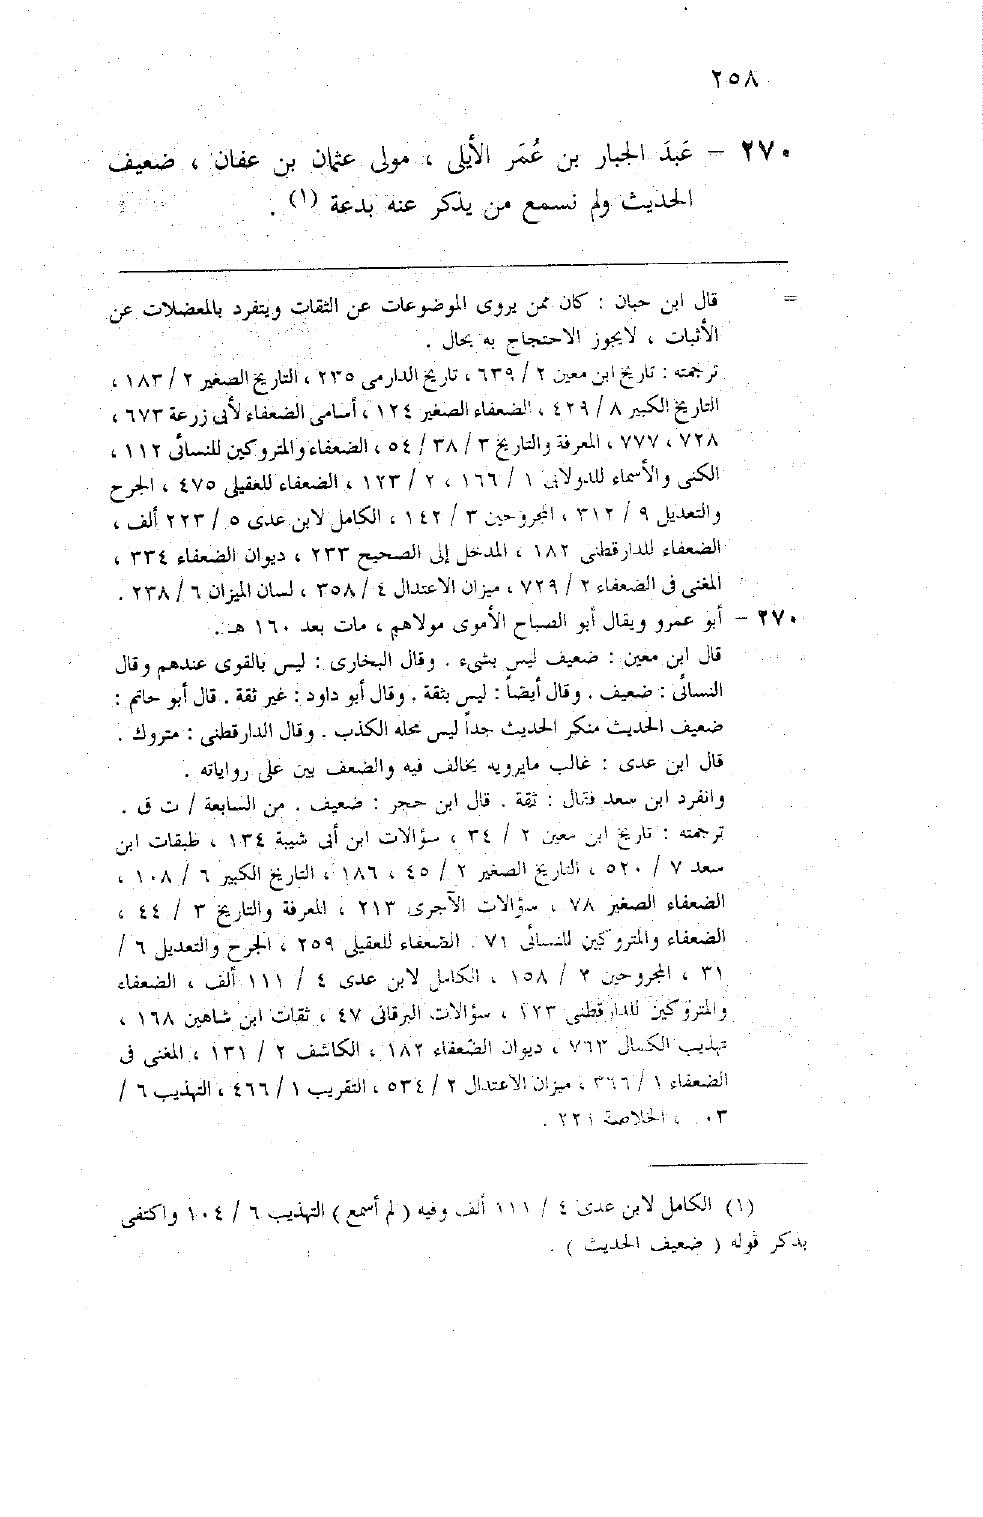 ٢٥٨
٢٧٠ – عَبدَ الجبار بن عُمَر الأيلى ، مولى عثمان بن عفان ، ضعيف
الحديث ولم نسمع من يذكر عنه بدعة (١) .
= قال ابن حبان : كان ممن يروى الموضوعات عن الثقات ويتفرد بالمعضلات عن
الأثبات ، لايجوز الاحتجاج به بحال .
ترجمته : تاريخ ابن معين ٢ / ٦٣٩ ، تاريخ الدارمى ٢٣٥ ، التاريخ الصغير ٢ / ١٨٣ ،
التاريخ الكبير ٨ / ٤٢٩ ، الضعفاء الصغير ١٢٤ ، أسامى الضعفاء لأبى زرعة ٦٧٣ ،
٧٢٨ ، ٧٧٧ ، المعرفة والتاريخ ٣ / ٣٨ / ٥٤ ، الضعفاء والمتروكين للنسائى ١١٢ ،
الكنى والأسماء للدولابى ١ / ١٦٦ ، ٢ / ١٢٣ ، الضعفاء للعقيلى ٤٧٥ ، الجرح
والتعديل ٩ / ٣١٢ ، المجروحين ٣ / ١٤٢ ، الكامل لابن عدى ٥ / ٢٢٣ ألف ،
الضعفاء للدارقطنى ١٨٢ ، المدخل إلى الصحيح ٢٣٣ ، ديوان الضعفاء ٣٣٤ ،
المغنى فى الضعفاء ٢ / ٧٢٩ ، ميزان الاعتدال ٤ / ٣٥٨ ، لسان الميزان ٦ / ٢٣٨ .
٢٧٠ – أبو عمرو ويقال أبو الصباح الأموى مولاهم ، مات بعد ١٦٠ هـ .
قال ابن معين : ضعيف ليس بشىء . وقال البخارى : ليس بالقوى عندهم وقال
النسائى : ضعيف . وقال أيضاً : ليس بثقة . وقال أبو داود : غير ثقة . قال أبو حاتم :
ضعيف الحديث منكر الحديث جداً ليس محله الكذب . وقال الدارقطنى : متروك .
قال ابن عدى : غالب مايرويه يخالف فيه والضعف بين على رواياته .
وانفرد ابن سعد فقال : ثقة . قال ابن حجر : ضعيف . من السابعة / ت ق .
ترجمته : تاريخ ابن معين ٢ / ٣٤ ، سؤالات ابن أبى شيبة ١٣٤ ، طبقات ابن
سعد ٧ / ٥٢٠ ، التاريخ الصغير ٢ / ٤٥ ، ١٨٦ ، التاريخ الكبير ٦ / ١٠٨ ،
الضعفاء الصغير ٧٨ ، سؤالات الآجرى ٢١٣ ، المعرفة والتاريخ ٣ / ٤٤ ،
الضعفاء والمتروكين للنسائى ٧١ . الضعفاء للعقيلى ٢٥٩ ، الجرح والتعديل ٦ /
٣١ ، المجروحين ٢ / ١٥٨ ، الكامل لابن عدى ٤ / ١١١ ألف ، الضعفاء
والمتروكين للدارقطنى ١٢٣ ، سؤالات البرقانى ٤٧ ، ثقات ابن شاهين ١٦٨ ،
تهذيب الكمال ٧٦٣ ، ديوان الضعفاء ١٨٢ ، الكاشف ٢ / ١٣١ ، المغنى فى
الضعفاء ١ / ٣٦٦ ، ميزان الاعتدال ٢ / ٥٣٤ ، التقريب ١ / ٤٦٦ ، التهذيب ٦ /
٠٣ ، الخلاصة ٢٢١ .
(١) الكامل لابن عدى ٤ / ١١١ ألف وفيه ( لم أسمع ) التهذيب ٦ / ١٠٤ واكتفى
بذكر قوله ( ضعيف الحديث ) .